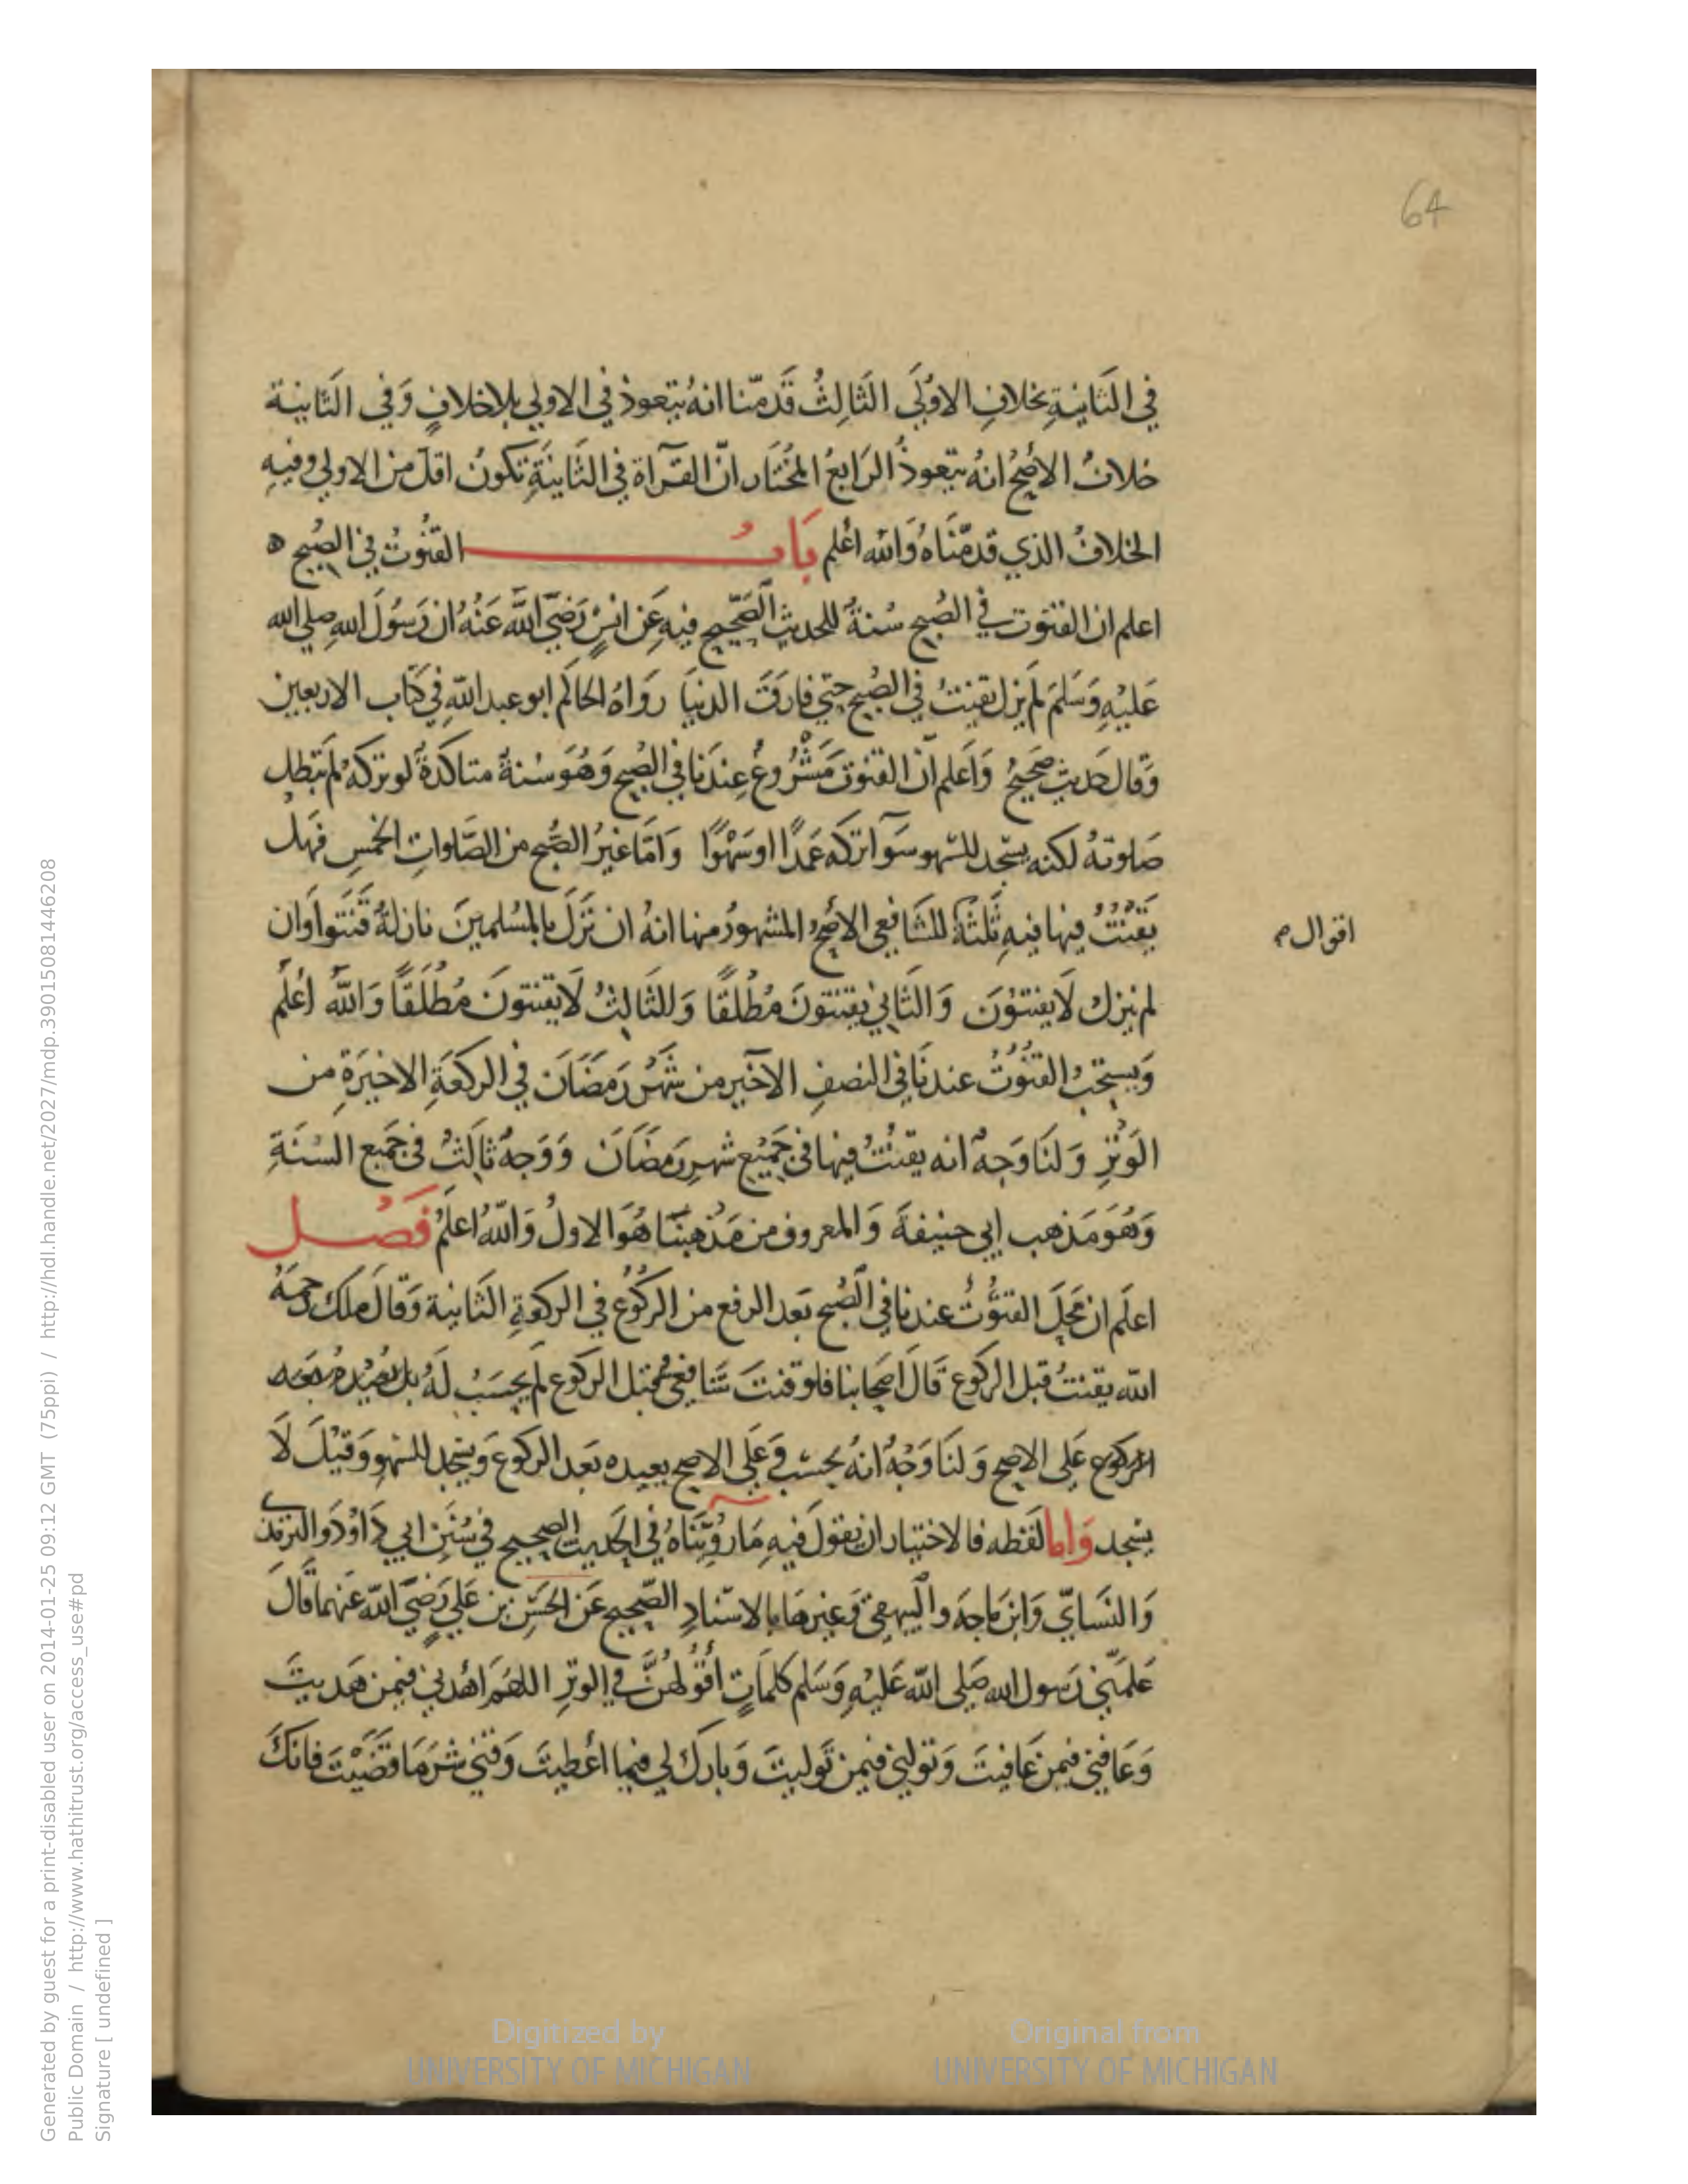 64
في الثَانيةِ بخلافِ الاوُلَى الثَالِثُ قَدمّنا انهُ يتعوذ في الاولي بلاخلافٍ وَفي الثانية
خلافُ الأصحُ انهُ يتعوذُ الرَابعُ المُختَار انّ القرآة في الثَانيَةِ تكونُ اقلّ من الاولي وفيهِ
الخلافُ الذي قدمّنَاهُ وَالله اعْلم بَابُ القنُوتُ في الصُبح ه
اعلم ان القنوت في الصُبح سُنةُ للحديث الصَحّيح فيهِ عَن انسٍ رَضيَ اللَّه عَنْهُ ان رَسُولَ الله صلي الله
عَليْهِ وَسَلمَ لم يزل يقنتُ في الصُبح حتي فارَقَ الدنيَا رَوَاهُ الحاكم ابو عبد اللّه في كتَاب الاربعين
وَقال حَديث صَحيحُ وَاعلم انّ القنوت مَشْرُوعُ عِندَنا في الصُبح وَهُوَ سُنةُ متاكدةُ لو تركهُ لم تبطل
صَلوتهُ لكنه يسجد للسّهو سَوآ تركه عَمدًا او سَهْوًا وَامّا غيرُ الصُّبح من الصّلواتِ الخمسِ فهَل
يَقنُتُ فيها فيهِ ثَلثَةُ للشَافِعي الأصحُ المشهورُ منها انهُ ان نَزَلَ بالمسُلمينَ نازلةُ قَنَتوا وَان
اقوال م
لم ينزل لَا يقنتوُنَ وَالثَاني يقنتونَ مُطْلَقًا وَللثَالِثُ لَا يقنتونَ مُطْلَقًا وَاللَّه أعْلَم
وَيسُتحبُ القنُوُتُ عندنَا في النصفِ الآخير من شَهْر رَمضَانَ في الركعَةِ الاخيرَةِ من
الوَترِ وَلنَا وَجهُ انه يقنُتُ فيها في جَميْع شهرِ رَمضَانَ وَوَجهُ ثالثُ في جَميع السنَةِ
وَهُوَ مَذهب ابي حنيفةَ وَالمعروف من مَذهبنَا هُوَ الاولُ وَاللّهُ اعلَمُ فَصْل
اعلَم ان مَحلَ القنوُّتُ عندنا في الصُبح بَعد الرفع من الركُوُع في الركعةِ الثانية وَقالَ ملك رحمَهُ
اللّه يقنتُ قبل الركُوع قَالَ اصحابنا فلو قنتَ شَافعيُ قبل الركُوع لم يحسَبْ لَهُ بل يعُيْدهُ بعَد
الركوع عَلى الاصح وَلنَا وَجْهُ انهُ يحسَب وَعَلى الاصح يعيده بَعد الركوع وَيسجد للسّهوِ وَقيْلَ لَا
يسْجد وَاما لَفظه فالاختيار ان يقولَ فيهِ مَا رُوِّينَاهُ في الحَديث الصحيح في سُنَنِ ابي دَاوْدَ والترمذي
وَالنسَايّ وَابن مَاجةَ والبيهقي وَغيرهَا بالاسنادِ الصّحيح عَن الحَسَنِ بن عَليٍ رَضيَ اللّه عَنهما قَالَ
عَلمَّني رَسول الله صَلى اللّه عَليْهِ وَسَلم كلمَاتٍ أقُولهُنَّ في الوترِ اللهُمَ اهْدني فيمن هَديتَ
وَعَافني فيمن عَافيتَ وَتولني فيمن تَوليتَ وَبارك لي فيما اعْطيتَ وَقني شرّ مَا قضَيْتَ فانكَ
Digitized by
UNIVERSITY OF MICHIGAN
Original from
UNIVERSITY OF MICHIGAN
Generated by guest for a print-disabled user on 2014-01-25 09:12 GMT (75ppi) / http://hdl.handle.net/2027/mdp.39015081446208
Public Domain / http://www.hathitrust.org/access_use#pd
Signature [ undefined ]